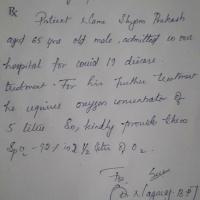 Rx
Patient Name Shyam Prakash
aged 65 yrs old male, admitted in our
hospital for covid 19 disease
treatment. For his further treatment
he requires oxygen concentrator of
5 liter. So, kindly provide them
SpO2 - 92% in 2 1/2 liter of O2.